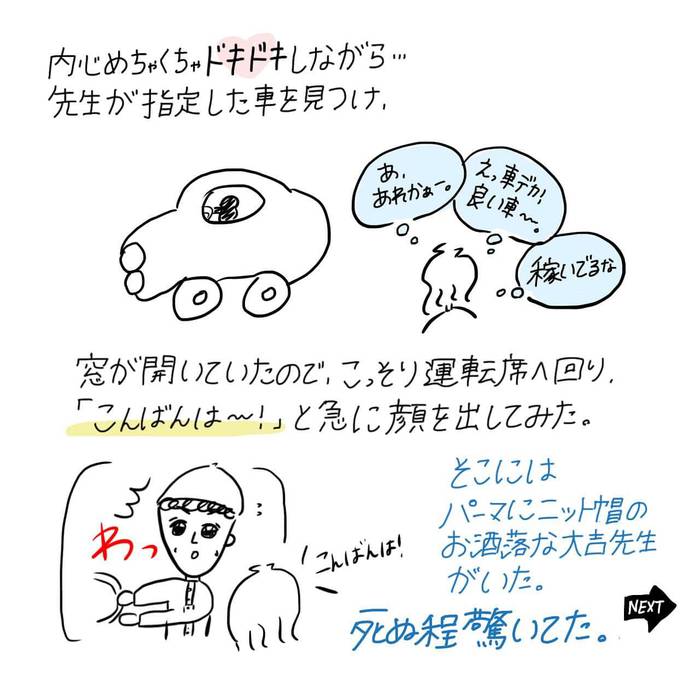 内心めちゃくちゃドキドキしながら…
先生が指定した車を見つけ、
あ、
あれかぁー。
えっ車デカ!
良い車〜。
稼いでるな
窓が開いていたので、こっそり運転席へ回り、
「こんばんは〜!」と急に顔を出してみた。
わっ
こんばんは!
そこには
パーマにニット帽の
お洒落な大吉先生
がいた。
死ぬ程驚いてた。
NEXT